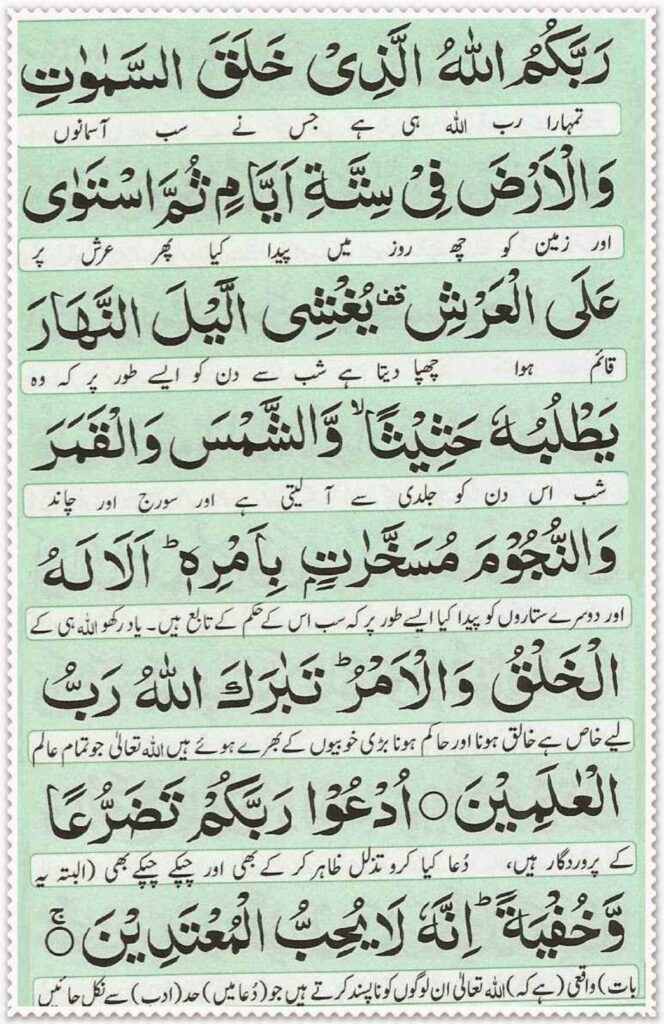 رَبَّكُمُ اللهُ الَّذِیْ خَلَقَ السَّمٰوٰتِ
تمہارا رب اللہ ہی ہے جس نے سب آسمانوں
وَالْاَرْضَ فِیْ سِتَّةِ اَیَّامٍ ثُمَّ اسْتَوٰی
اور زمین کو چھ روز میں پیدا کیا پھر عرش پر
عَلَی الْعَرْشِ قف یُغْشِی الَّیْلَ النَّهَارَ
قائم ہوا چھپا دیتا ہے شب سے دن کو ایسے طور پر کہ وہ
یَطْلُبُهٗ حَثِیْثًا ۙ وَّالشَّمْسَ وَالْقَمَرَ
شب اس دن کو جلدی سے آ لیتی ہے اور سورج اور چاند
وَالنُّجُوْمَ مُسَخَّرٰتٍۭ بِاَمْرِهٖ ؕ اَلَا لَهُ
اور دوسرے ستاروں کو پیدا کیا ایسے طور پر کہ سب اس کے حکم کے تابع ہیں۔ یاد رکھو اللہ ہی کے
الْخَلْقُ وَالْاَمْرُ ؕ تَبٰرَكَ اللهُ رَبُّ
لیے خاص ہے خالق ہونا اور حاکم ہونا بڑی خوبیوں کے بھرے ہوئے ہیں اللہ تعالیٰ جو تمام عالم
الْعٰلَمِیْنَ ○ اُدْعُوْا رَبَّكُمْ تَضَرُّعًا
کے پروردگار ہیں، دُعا کیا کرو تذلل ظاہر کر کے بھی اور چپکے چپکے بھی (البتہ یہ
وَّخُفْیَةً ؕ اِنَّهٗ لَا یُحِبُّ الْمُعْتَدِیْنَ ○ ۚ
بات) واقعی (ہے کہ) اللہ تعالیٰ ان لوگوں کو ناپسند کرتے ہیں جو (دُعا میں) حد (ادب) سے نکل جائیں